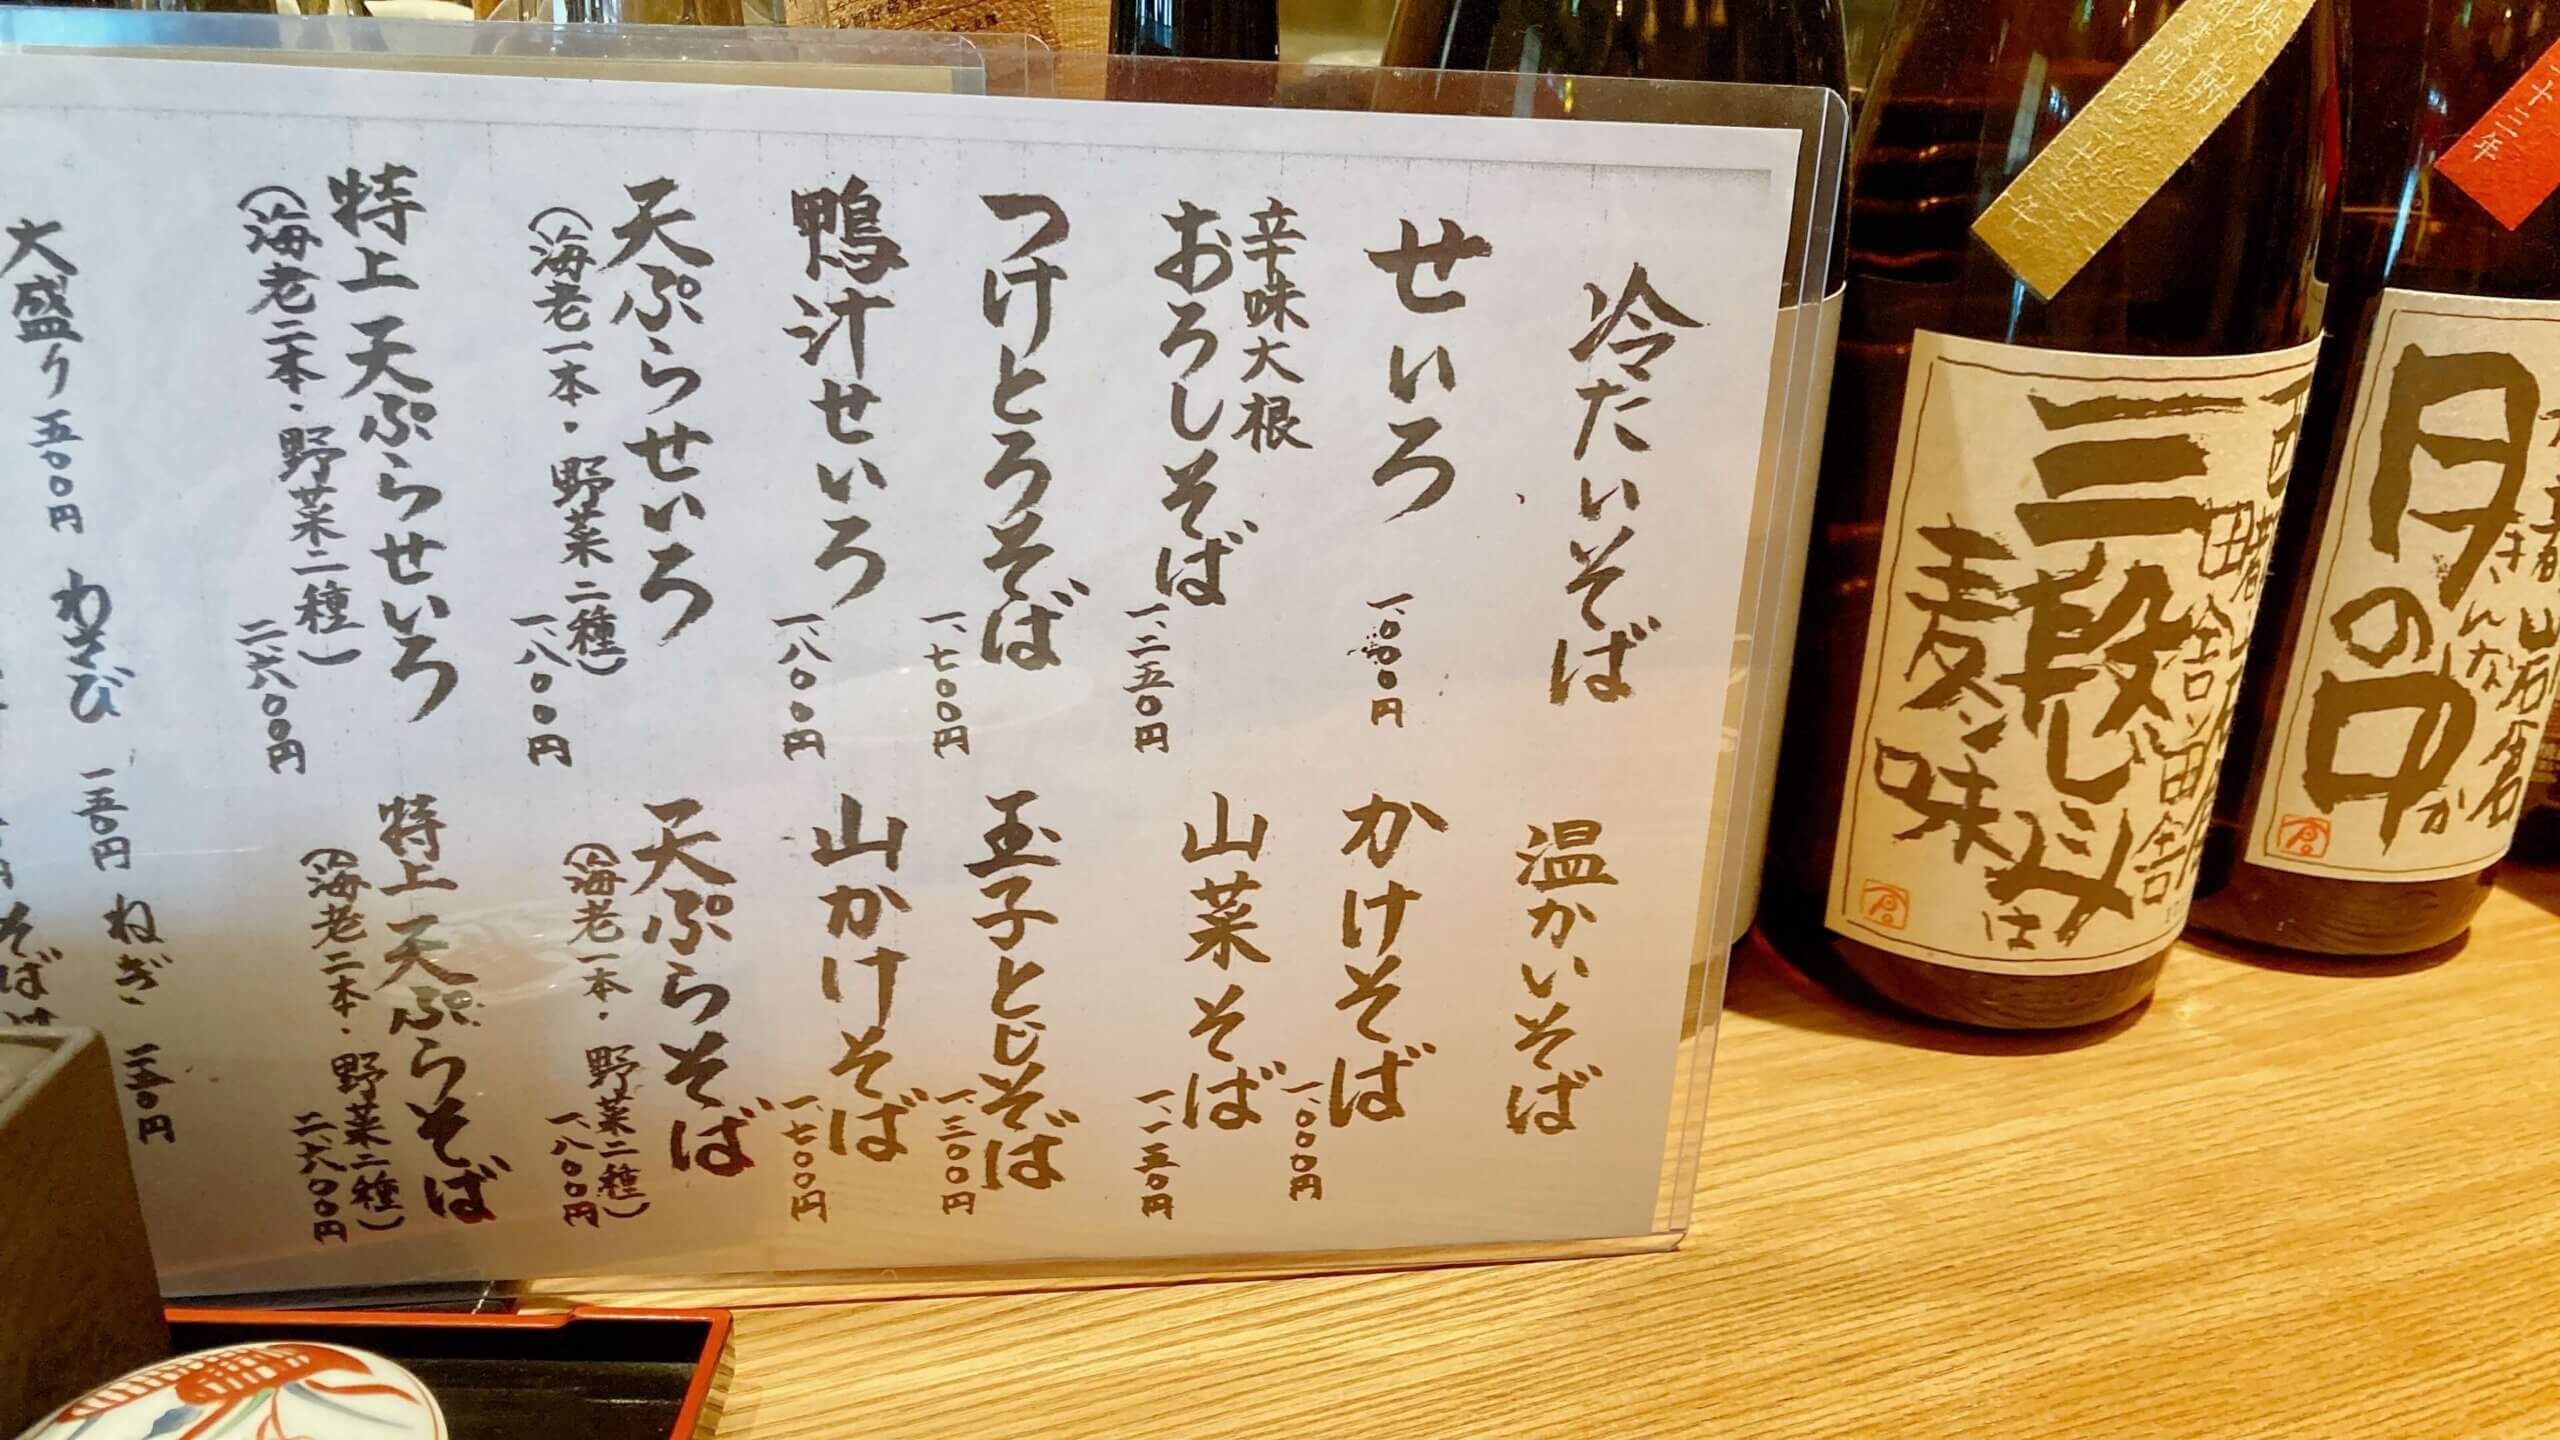 冷たいそば
せいろ 一、〇〇〇円
辛味大根
おろしそば 一、二五〇円
つけとろそば 一、七〇〇円
鴨汁せいろ 一、八〇〇円
天ぷらせいろ
(海老一本・野菜二種) 一、八〇〇円
特上天ぷらせいろ
(海老二本・野菜二種) 二、六〇〇円
温かいそば
かけそば 一、〇〇〇円
山菜そば 一、一五〇円
玉子とじそば 一、三〇〇円
山かけそば 一、七〇〇円
天ぷらそば
(海老一本・野菜二種) 一、八〇〇円
特上天ぷらそば
(海老二本・野菜二種) 二、六〇〇円
大盛り 五〇〇円 わさび 一五〇円 ねぎ 一五〇円
そば
三段じ込み
麦ン味は
月の中
か
さんなか
岩倉
十三年